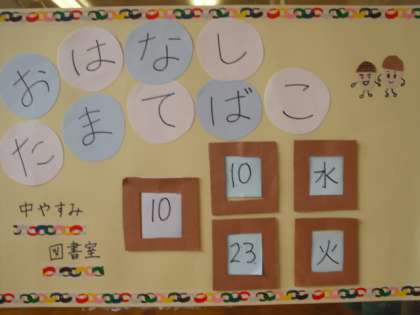 おはなし
たまてばこ
中やすみ
図書室
10
10 水
23 火